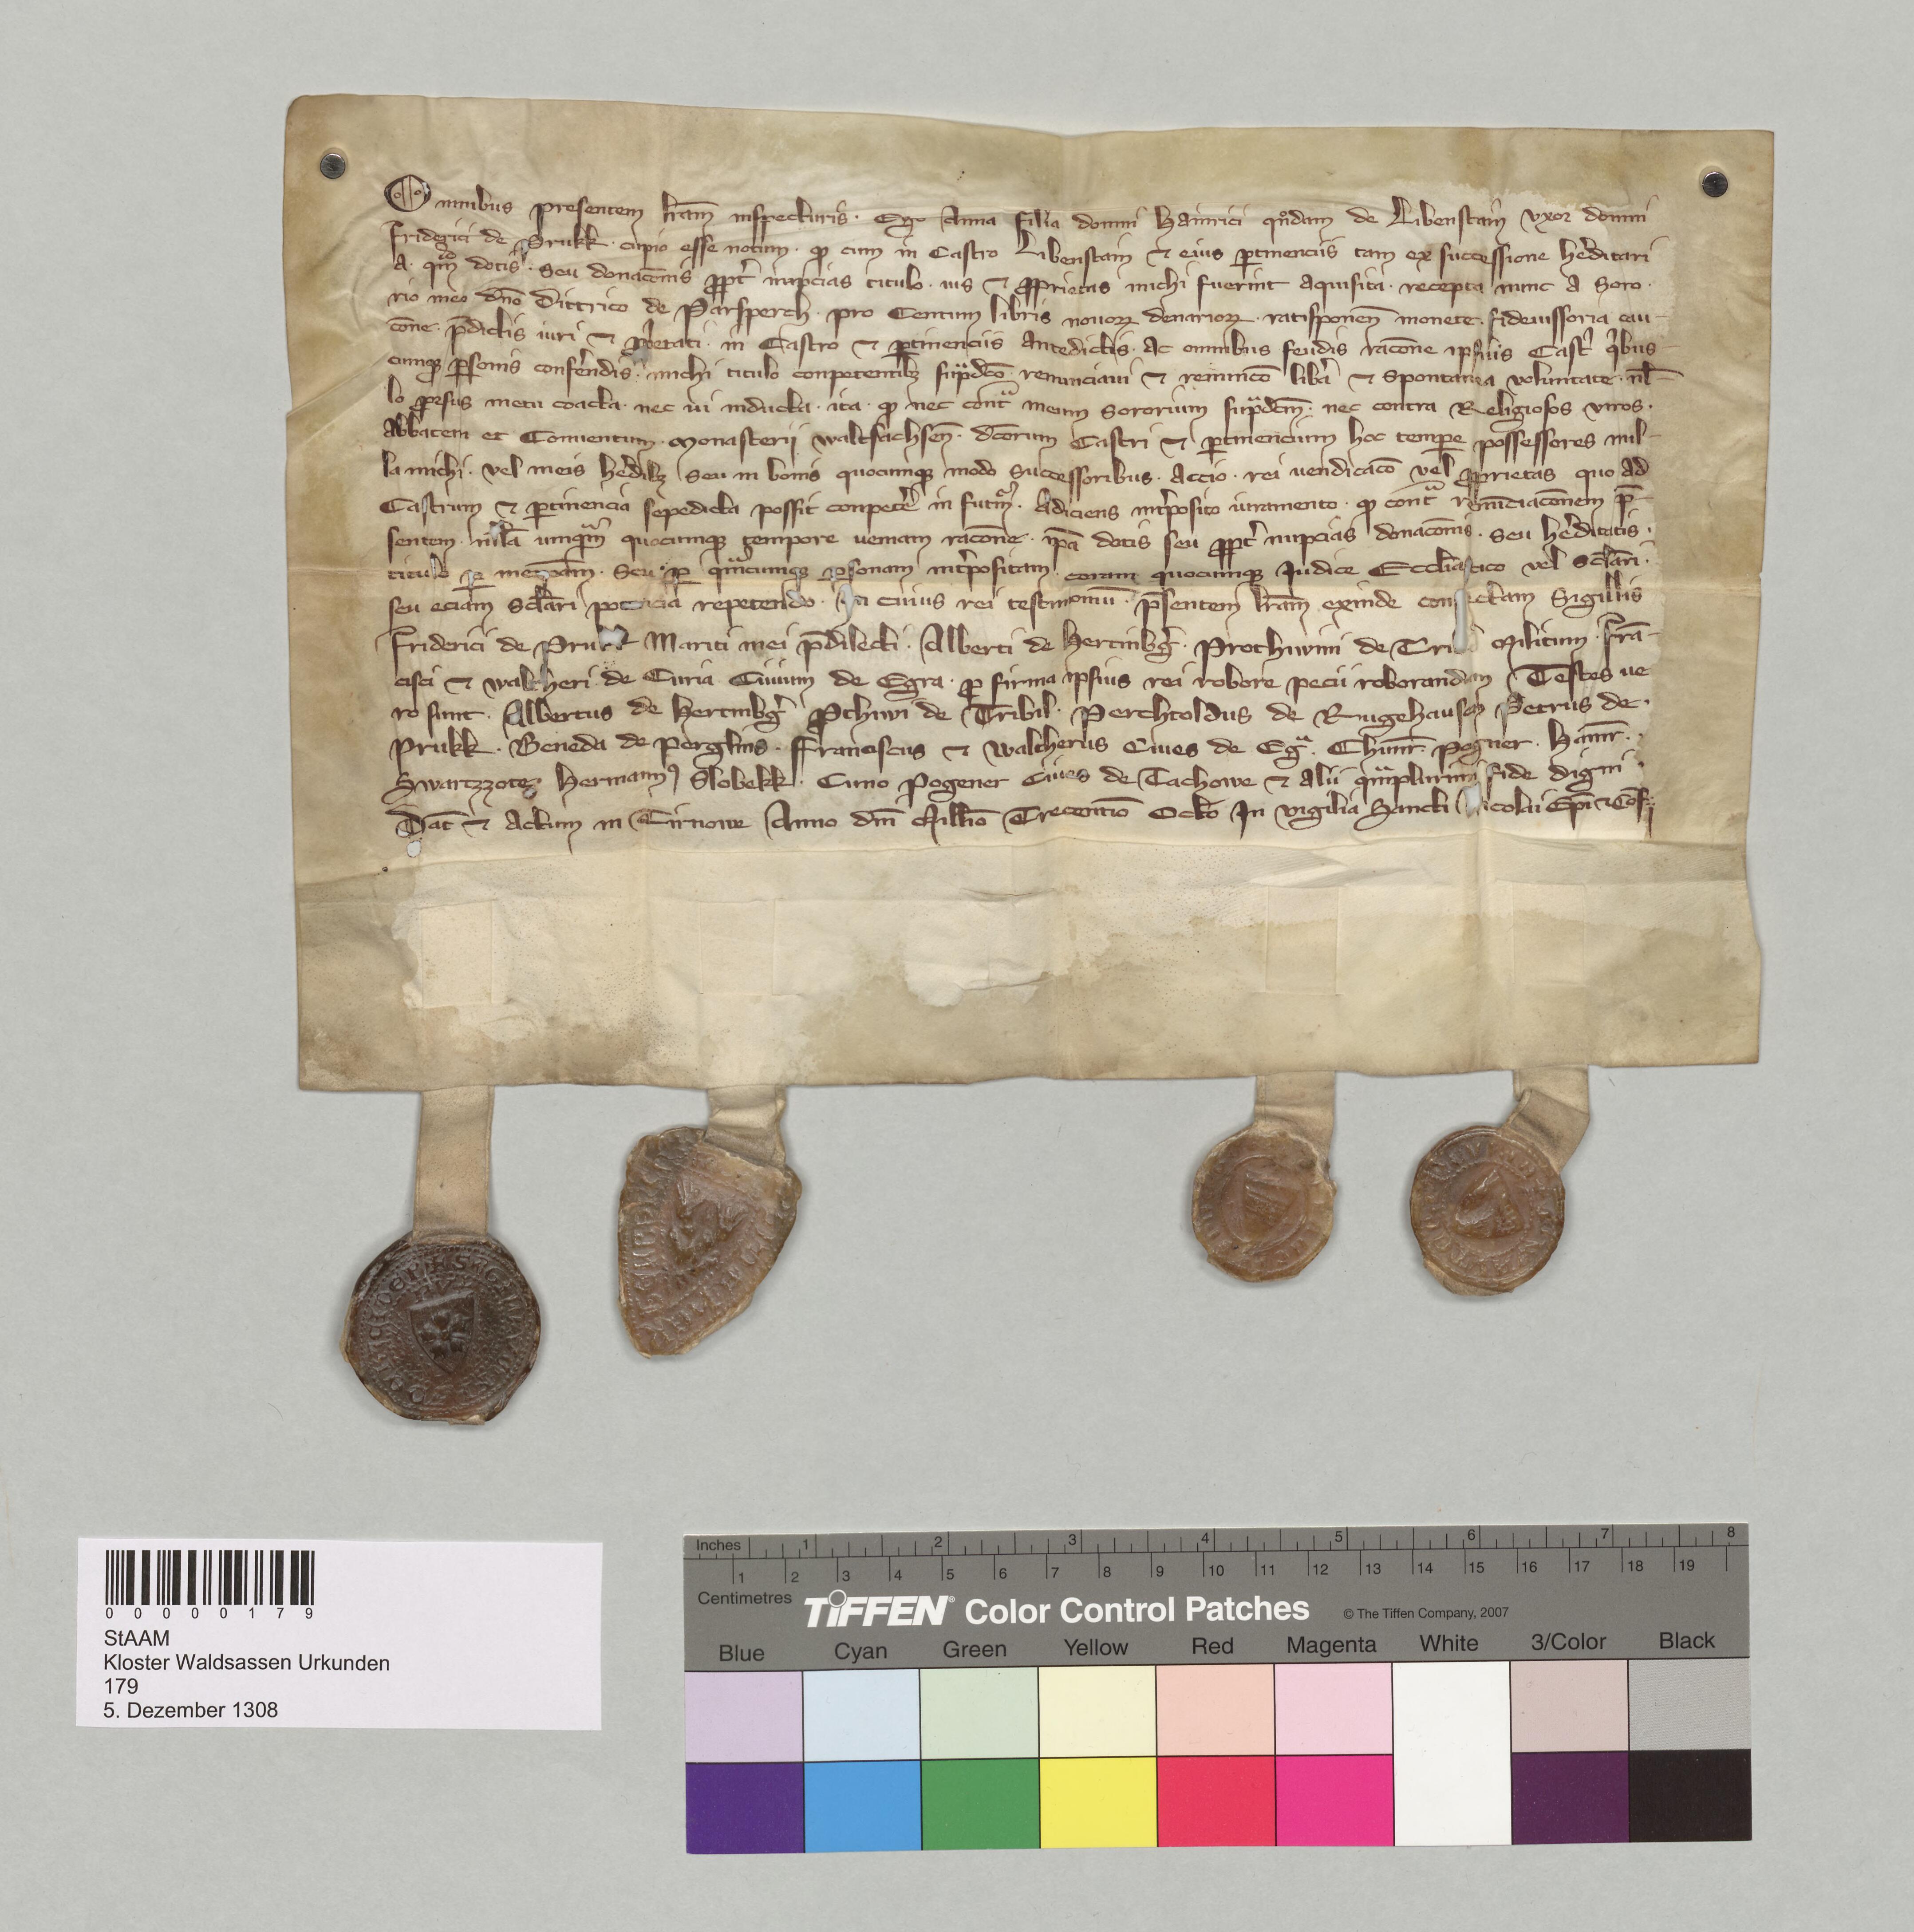 Omnibus presentem l̄ram inspecturis · Ego Anna filia domini Hainrici q̊ndam de Libenstain vxor domini
friderici de Prukk · cupio esse notum · ꝙ cum in Castro Libenstain ⁊ eius ꝑtinenciis tam ex successione h̓editari
a · qm̄ dotis · seu donac̄onis ꝓpt̓ nupcias titulo · ius ⁊ ꝓprietas michi fuerint aquisita · recepta nunc a soro ·
rio meo dn̄o Dittrico de Parsperch · pro Centum libris nouoꝝ denarioꝝ · ratisponen̄ monete · fideiussoria cau-
c̄one · p̄dictis iuri ⁊ ꝓp̓etati · in Castro ⁊ ꝑtinenciis antedictis · ac omnibus feudis rac̄one ipsius Cast̓ q̓bus-
cumqꝫ ꝑsonis conferendis · michi titulo conpetentibꝫ sup̄dc̄o · renunciaui ⁊ renuncio lib̓a ⁊ spontanea voluntate · nl̄-
lo prorsus metu coacta · nec ui inducta · ita · ꝙ nec contᵃ meum sororium sup̄dc̄m · nec contra Religiosos viros ·
Abbatem et Conuentum · Monasterij Waltsachsen̄ · dc̄orum Castri ⁊ ꝑtinencium hoc temꝑe possessores nul-
la michi · vel meis h̓edibꝫ seu in bonis quocumqꝫ modo successoribus · accio · rei uendicac̄o vel ꝓprietas quo ad
Castrum ⁊ ꝑtinencia sepedicta possit conpet̓e in futᵃm · Adiciens int̓posito iuramento · ꝙ contᵃ renunciac̄onem p̄-
sentem · nulla umqᵃm quocumqꝫ tempore ueniam rac̄one · ip̄a dotis seu ꝓpt̓ nupcias donac̄onis · seu h̓editatis ·
titulo ꝑ me · seu ꝑ qᵃmcumqꝫ ꝑsonam int̓positam coram quocumqꝫ Judice Eccl̄iastico vel sc̄lari ·
seu eciam sc̄lari potencia repetendo · In cuius rei testimoniū · p̄sentem l̄ram exinde Sigillis
Friderici de Mariti mei p̄dilecti · Alberti de Hertinbg̓ · Prothiwini de Militum · Fra̅-
cisci ⁊ Waltheri de Curia Ciuium de Egra · ꝑ firma ipsius rei robore pecii roborandam Testes ue
ro sunt · Albertus de Hertinbg̓ Pthiwi de Tribil · Perchtoldus de Rugehausen Petrus de ·
Prukk · Beneda de Perglins · Franciscus ⁊ Waltherus Ciues de Egᵃ · Chunr̄ · Pogner · Hainr̄ ·
Swartzzote · Hermannꝰ Slobekk · Cuno Pogener Ciues de Tachowe ⁊ alii qᵃmplurimi fide digni ·
Dat̄ ⁊ Actum in Tirnowe Anno dn̄i Mill̄io Trecentīo Octō In vigilia Sancti Nicolai Ep̄i ⁊ Cōf
0 0 0 0 0 1 7 9
StAAM
Kloster Waldsassen Urkunden
179
5. Dezember 1308
Inches 1 2 3 4 5 6 7 8
1 2 3 4 5 6 7 8 9 10 11 12 13 14 15 16 17 18 19
Centimetres TIFFEN® Color Control Patches © The Tiffen Company, 2007
Blue Cyan Green Yellow Red Magenta White 3/Color Black